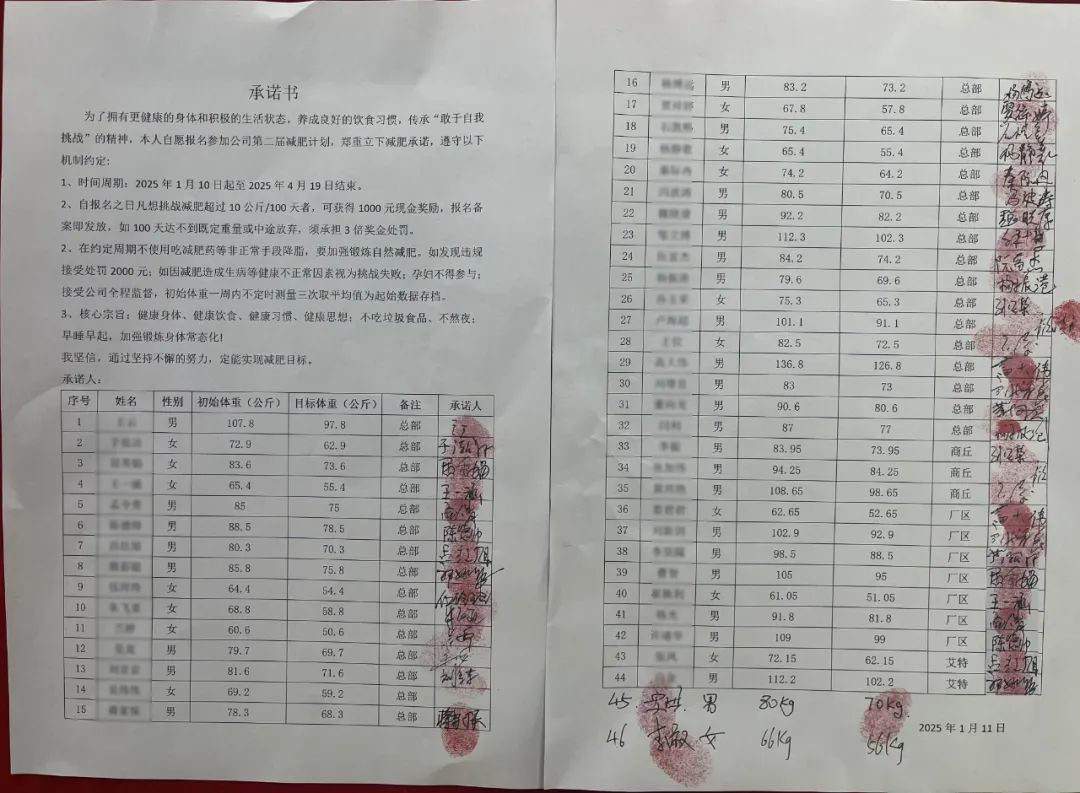 承诺书
为了拥有更健康的身体和积极的生活状态，养成良好的饮食习惯，传承“敢于自我
挑战”的精神，本人自愿报名参加公司第二届减肥计划，郑重立下减肥承诺，遵守以下
机制约定：
1、时间周期：2025年1月10日起至2025年4月19日结束。
2、自报名之日凡想挑战减肥超过10公斤/100天者，可获得1000元现金奖励，报名备
案即发放，如100天达不到既定重量或中途放弃，须承担3倍奖金处罚。
2、在约定周期不使用吃减肥药等非正常手段降脂，要加强锻炼自然减肥。如发现违规
接受处罚2000元；如因减肥造成生病等健康不正常因素视为挑战失败；孕妇不得参与；
接受公司全程监督，初始体重一周内不定时测量三次取平均值为起始数据存档。
3、核心宗旨：健康身体、健康饮食、健康习惯、健康思想；不吃垃圾食品、不熬夜；
早睡早起，加强锻炼身体常态化！
我坚信，通过坚持不懈的努力，定能实现减肥目标。
承诺人：
序号 姓名 性别 初始体重（公斤） 目标体重（公斤） 备注 承诺人
1 男 107.8 97.8 总部
2 女 72.9 62.9 总部
3 女 83.6 73.6 总部
4 女 65.4 55.4 总部
5 男 85 75 总部
6 男 88.5 78.5 总部
7 男 80.3 70.3 总部
8 男 85.8 75.8 总部
9 女 64.4 54.4 总部
10 女 68.8 58.8 总部
11 女 60.6 50.6 总部
12 男 79.7 69.7 总部
13 男 81.6 71.6 总部
14 女 69.2 59.2 总部
15 男 78.3 68.3 总部
16 男 83.2 73.2 总部
17 女 67.8 57.8 总部
18 男 75.4 65.4 总部
19 女 65.4 55.4 总部
20 女 74.2 64.2 总部
21 男 80.5 70.5 总部
22 男 92.2 82.2 总部
23 男 112.3 102.3 总部
24 男 84.2 74.2 总部
25 男 79.6 69.6 总部
26 女 75.3 65.3 总部
27 男 101.1 91.1 总部
28 女 82.5 72.5 总部
29 男 136.8 126.8 总部
30 男 83 73 总部
31 男 90.6 80.6 总部
32 男 87 77 总部
33 男 83.95 73.95 商丘
34 男 94.25 84.25 商丘
35 男 108.65 98.65 商丘
36 女 62.65 52.65 厂区
37 男 102.9 92.9 厂区
38 男 98.5 88.5 厂区
39 男 105 95 厂区
40 女 61.05 51.05 厂区
41 男 91.8 81.8 厂区
42 男 109 99 厂区
43 女 72.15 62.15 艾特
44 男 112.2 102.2 艾特
45. 男 80kg 70kg
46 女 66kg 56kg
2025年1月11日